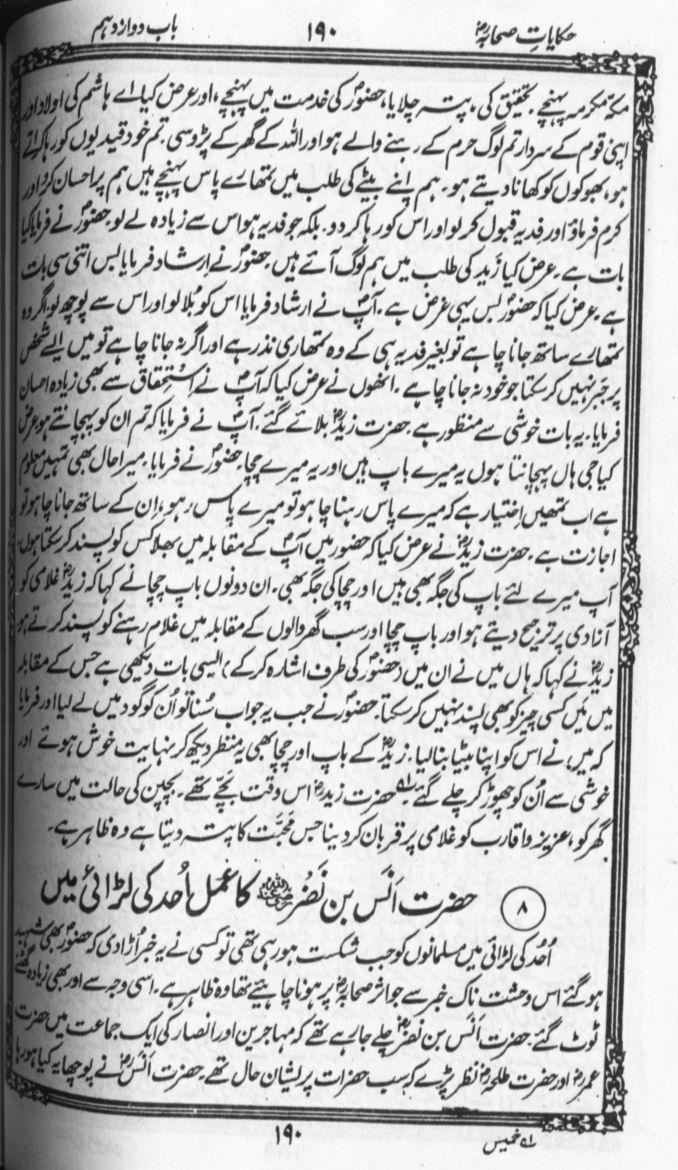 حکایاتِ صحابہؓ ۱۹۰ باب دوازدہم
مکہ مکرمہ پہنچے۔ تحقیق کی، پتہ چلایا، حضورؐ کی خدمت میں پہنچے، اور عرض کیا۔ اے ہاشم کی اولاد اور
اپنی قوم کے سردار تم لوگ حرم کے رہنے والے ہو اور اللہ کے گھر کے پڑوسی۔ تم خود قیدیوں کو رہا کراتے
ہو، بھوکوں کو کھانا دیتے ہو۔ ہم اپنے بیٹے کی طلب میں تمھارے پاس پہنچے ہیں ہم پر احسان کرو اور
کرم فرماؤ اور فدیہ قبول کر لو اور اس کو رہا کر دو۔ بلکہ جو فدیہ ہو اس سے زیادہ لے لو۔ حضورؐ نے فرمایا کیا
بات ہے۔ عرض کیا زید کی طلب میں ہم لوگ آئے ہیں۔ حضورؐ نے ارشاد فرمایا بس اتنی سی بات
ہے۔ عرض کیا کہ حضورؐ بس یہی غرض ہے۔ آپؐ نے ارشاد فرمایا اس کو بُلا لو اور اس سے پوچھ لو۔ اگر وہ
تمھارے ساتھ جانا چاہے تو بغیر فدیہ ہی کے وہ تمھاری نذر ہے اور اگر نہ جانا چاہے تو میں ایسے شخص
پر جبر نہیں کر سکتا جو خود نہ جانا چاہے۔ انھوں نے عرض کیا کہ آپؐ نے اِستحقاق سے بھی زیادہ احسان
فرمایا۔ یہ بات خوشی سے منظور ہے۔ حضرت زیدؓ بلائے گئے۔ آپؐ نے فرمایا کہ تم ان کو پہچانتے ہو عرض
کیا جی ہاں پہچانتا ہوں یہ میرے باپ ہیں اور یہ میرے چچا۔ حضورؐ نے فرمایا۔ میرا حال بھی تمہیں معلوم
ہے اب تمھیں اختیار ہے کہ میرے پاس رہنا چاہو تو میرے پاس رہو، اِن کے ساتھ جانا چاہو تو
اجازت ہے۔ حضرت زیدؓ نے عرض کیا کہ حضور میں آپؐ کے مقابلہ میں بھلا کس کو پسند کر سکتا ہوں،
آپ میرے لئے باپ کی جگہ بھی ہیں اور چچا کی جگہ بھی۔ ان دونوں باپ چچا نے کہا کہ زیدؓ غلامی کو
آزادی پر ترجیح دیتے ہو اور باپ چچا اور سب گھر والوں کے مقابلہ میں غلام رہنے کو پسند کرتے ہو
زیدؓ نے کہا کہ ہاں میں نے ان میں (حضورؐ کی طرف اشارہ کرکے) ایسی بات دیکھی ہے جس کے مقابلہ
میں میں کسی چیز کو بھی پسند نہیں کر سکتا۔ حضورؐ نے جب یہ جواب سُنا تو اُن کو گود میں لے لیا اور فرمایا
کہ میں نے اس کو اپنا بیٹا بنا لیا۔ زیدؓ کے باپ اور چچا بھی یہ منظر دیکھ کر نہایت خوش ہوئے اور
خوشی سے اُن کو چھوڑ کر چلے گئے لہ حضرت زیدؓ اس وقت بچے تھے۔ بچپن کی حالت میں سارے
گھر کو، عزیز و اقارب کو غلامی پر قربان کر دینا جس محبّت کا پتہ دیتا ہے وہ ظاہر ہے۔
۸ حضرت اَنس بن نَضرؓ کا عمل اُحد کی لڑائی میں
اُحد کی لڑائی میں مسلمانوں کو جب شکست ہو رہی تھی تو کسی نے یہ خبر اُڑا دی کہ حضورؐ بھی شہید
ہو گئے اس وحشت ناک خبر سے جو اثر صحابہؓ پر ہونا چاہیئے تھا وہ ظاہر ہے۔ اسی وجہ سے اور بھی زیادہ گھٹنے
ٹوٹ گئے۔ حضرت اَنس بن نضرؓ چلے جا رہے تھے کہ مہاجرین اور انصار کی ایک جماعت میں حضرت
عمرؓ اور حضرت طلحہؓ نظر پڑے کہ سب حضرات پریشان حال تھے۔ حضرت اَنسؓ نے پوچھا یہ کیا ہو رہا
لہ خمیس ۱۹۰